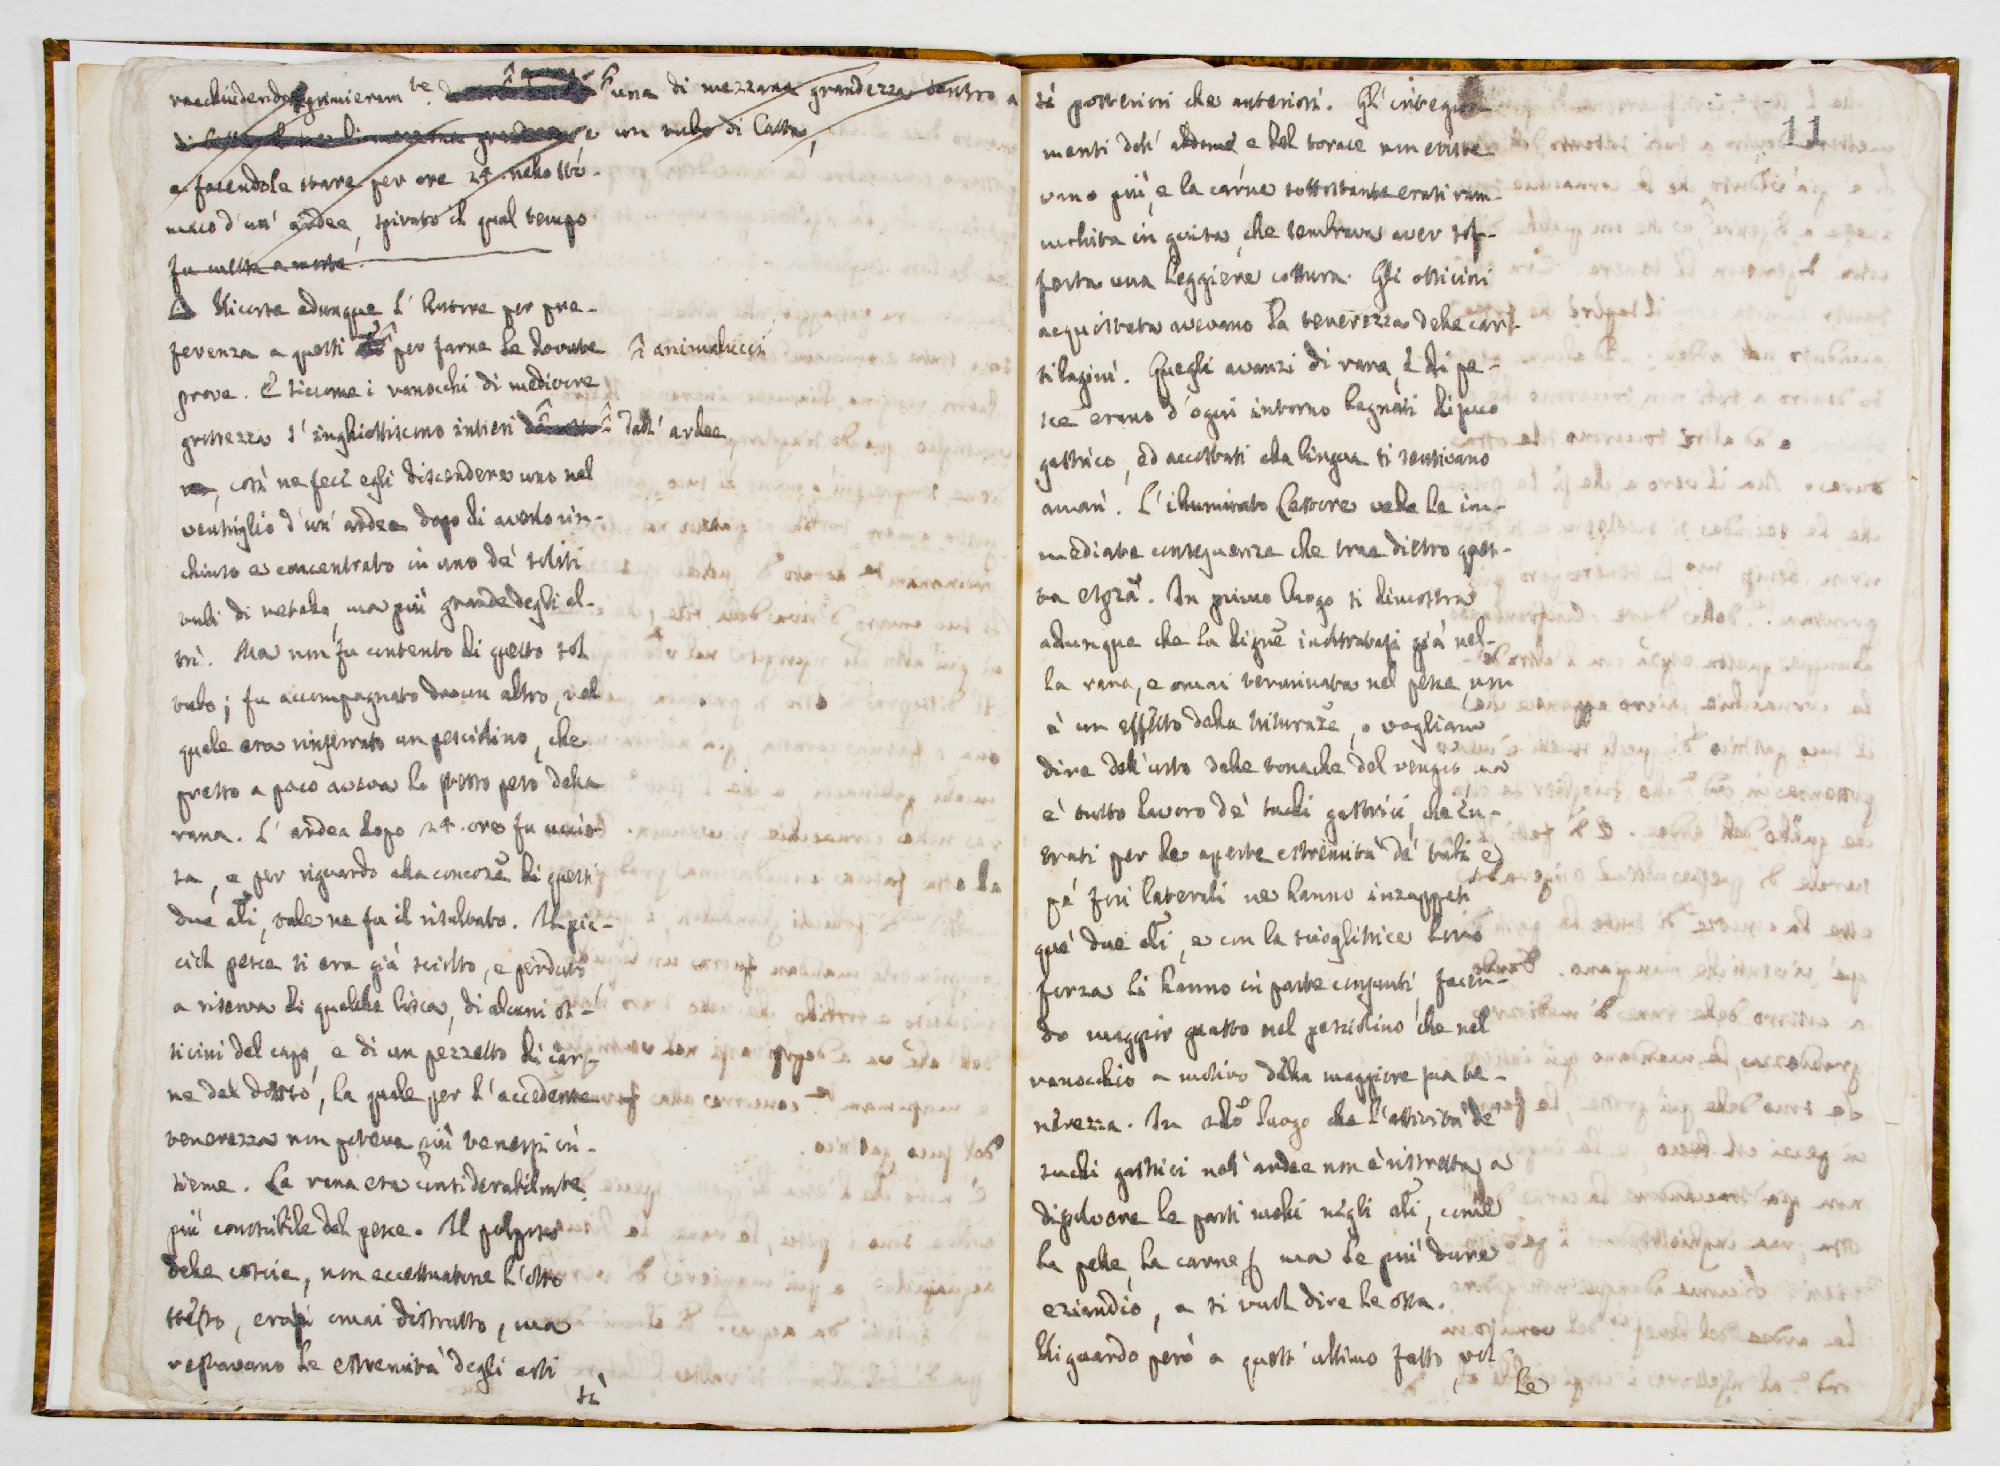 racchiudendo primieram.te una di mezzana grandezza dentro a
un tubo di Latta,
e facendole stare per ore 24. nello sto-
maco d'un' ardea, spirato il qual tempo
fu messa a morte.
Ricorre adunque l'Autore per pre-
ferenza a questi animalucci per farne le dovute
prove. E siccome i ranocchi di mediocre
grossezza s'inghiottiscono intieri dall' ardee,
così ne fece egli discendere uno nel
ventriglio d'un' ardea dopo di averlo rin-
chiuso e concentrato in uno de' soliti
tubi di metallo, ma più grande degli al-
tri. Ma non fu contento di questo sol
tubo; fu accompagnato da un altro, nel
quale era rinserrato un pesciolino, che
presso a poco aveva lo stesso peso della
rana. L'ardea dopo 24. ore fu ucci-
sa, e per riguardo alla concoz.e di questi
due ali, tale ne fu il risultato. Il pic-
ciol pesce si era già sciolto, e perduto
a riserva di qualche lisca, di alcuni os-
sicini del capo, e di un pezzetto di car-
ne del dorso, la quale per l'eccedente
tenerezza non poteva più tenersi in-
sieme. La rana era considerabilmte
più consistibile del pesce. Il polposo
delle coscie, non eccettuatone l'osso
stesso, erasi omai distrutto, ma
restavano le estremità degli arti
sì
11
sì posteriori che anteriori. Gl' integu-
menti dell' abdome, e del torace non esiste-
vano più, e la carne sottostante erasi ram-
mollita in guisa, che sembrava aver sof-
ferta una leggiera cottura. Gli ossicini
acquistata avevano la tenerezza delle car-
tilagini. Quegli avanzi di rana, e di pe-
sce erano d'ogni intorno bagnati di suco
gastrico, ed accostati alla lingua si sentivano
amari. L'illuminato Lettore vede le im-
mediate conseguenze che trae dietro ques-
ta espza. In primo luogo si dimostra
adunque che la digne inoltratasi già nel-
la rana, e omai terminata nel pesce, non
è un effetto della trituraze, o vogliam
dire dell' urto delle tonache del ventrig. ma
è tutto lavoro de' suchi gastrici, che en-
trati per le aperte estremità de' tubi e
pe' fori laterali ne hanno inzuppati
que' due ali, e con la scioglitrice loro
forza li hanno in parte consunti, facen-
do maggior guasto nel pesciolino, che nel
ranocchio a motivo della maggiore sua te-
nerezza. In 2do luogo che l'attività de'
suchi gastrici nell' ardee non è ristretta a
disolvere le parti molli negli ali, come
la pelle, la carne, ma le più dure
eziandio, a si vuol dire le ossa.
Riguardo però a quest' ultimo fatto, vol-
le